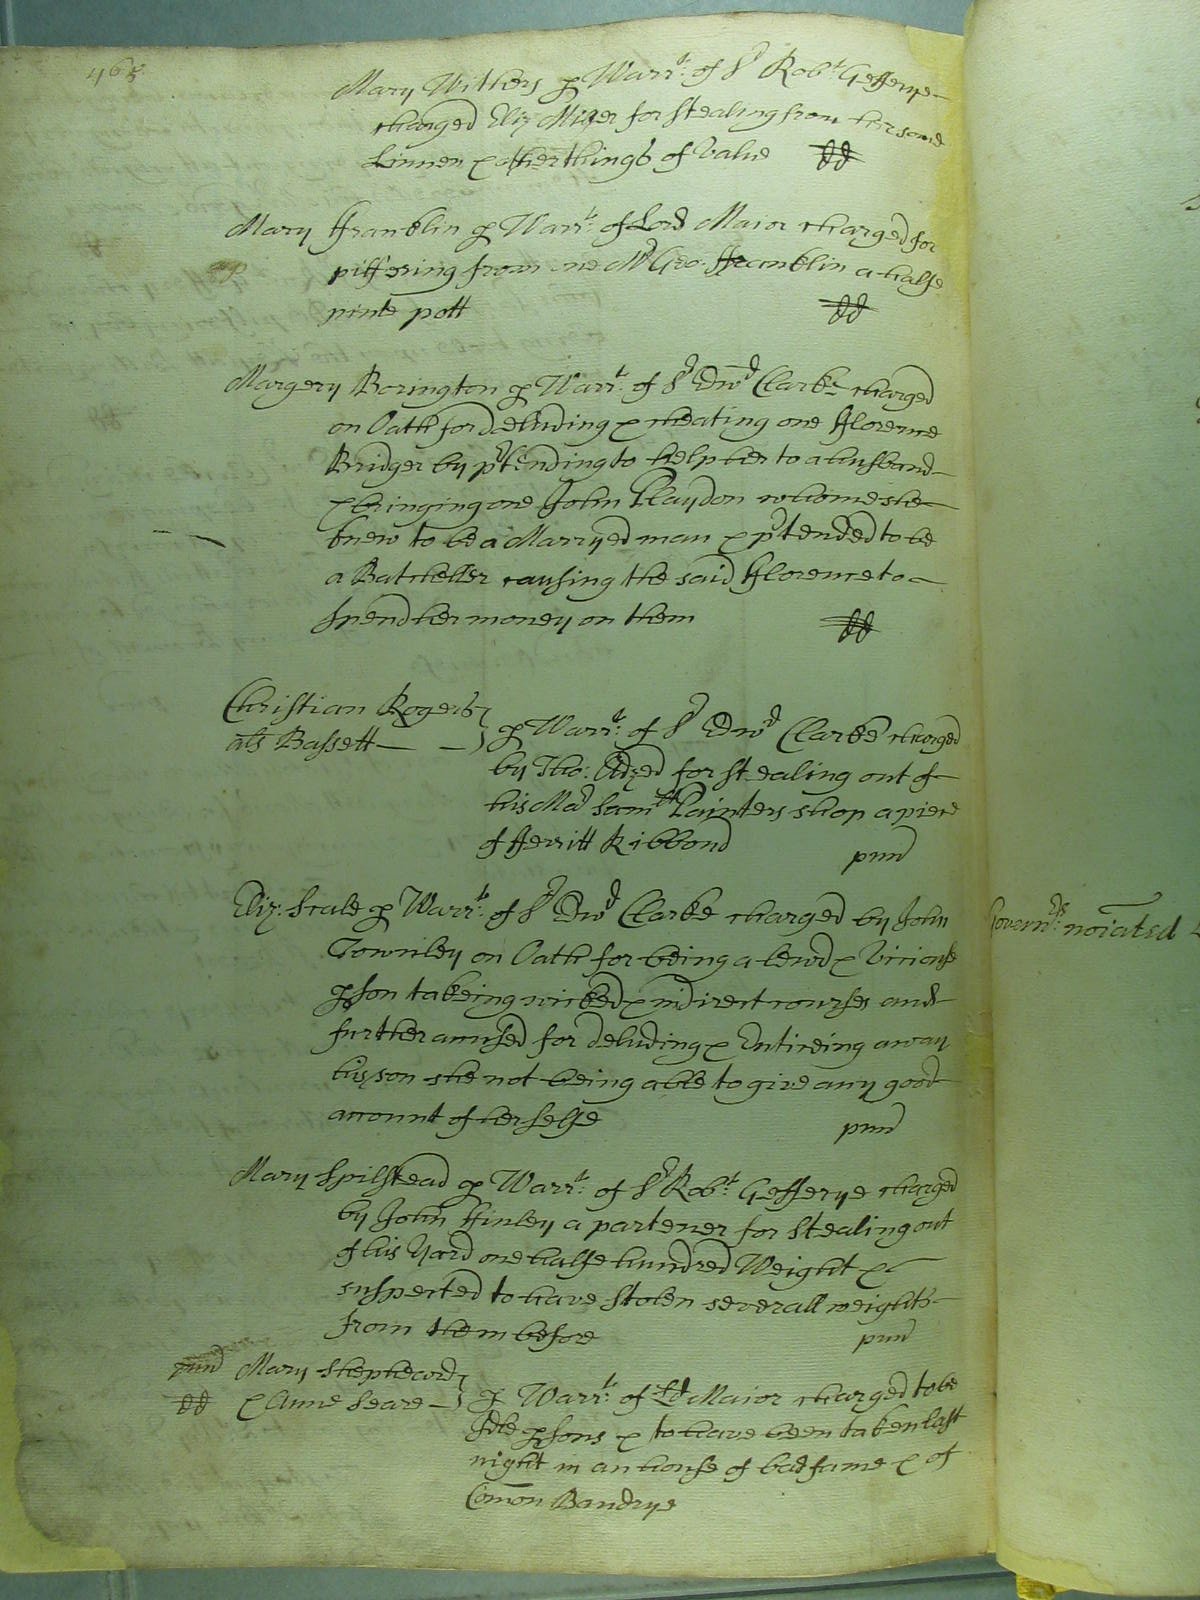 468
Mary Withers p Warr^t: of S^r Rob^t Gefferye
charged Eliz Mizer for stealing from her some
Linnen & other things of Value dd
Mary ffranklin p Warr^t: of Lord Maior charged for
pilfering from one M^r Geo: ffranklin a halfe
pinte pott dd
Margery Borington p Warr^t: of S^r Edw^d Clarke charged
on Oath for deluding & cheating one fflorence
Bridger by p^rtending to help her to a husband
& bringing one John Playdon whome she
knew to be a Marryed man & p^rtended to be
a Batcheller causing the said fflorence to
spend her money on them dd
Christian Rogers
als Bassett p Warr^t: of S^r Edw^d Clarke charged
by Tho: for stealing out of
his Ma^r Sam^ll Painters shop a piece
of fferritt Ribbond pun^d
Eliz: Scale p Warr^t: of S^r Edw^d Clarke charged by John
Townley on Oath for being a lewd & Viciouse
pson takeing wicked & indirect courses and
further accused for deluding & Enticeing away
his son she not being able to give any good
account of herselfe pun^d
Mary Spilstead p Warr^t: of S^r Rob^t: Gefferye charged
by John ffinley a partener for stealing out
of his Yard one halfe hundred Weight &
suspected to have stolen severall weights
from them before pun^d
pun^d Mary Shepheard
dd & Anne Seare p Warr^t: of L^d Maior charged to be
Idle psons & to have been taken last
night in an house of bad fame & of
Comon Bawdrye
Govern^rs: noiated